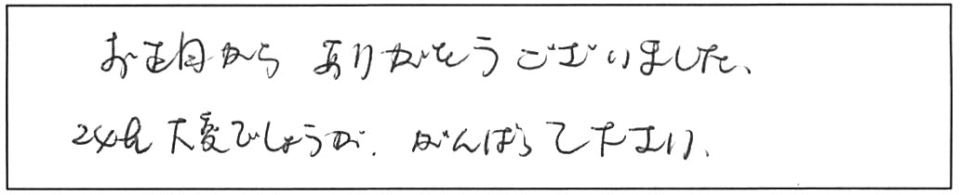 お正月から ありがとうございました、
24h 大変でしょうが、がんばって下さい、